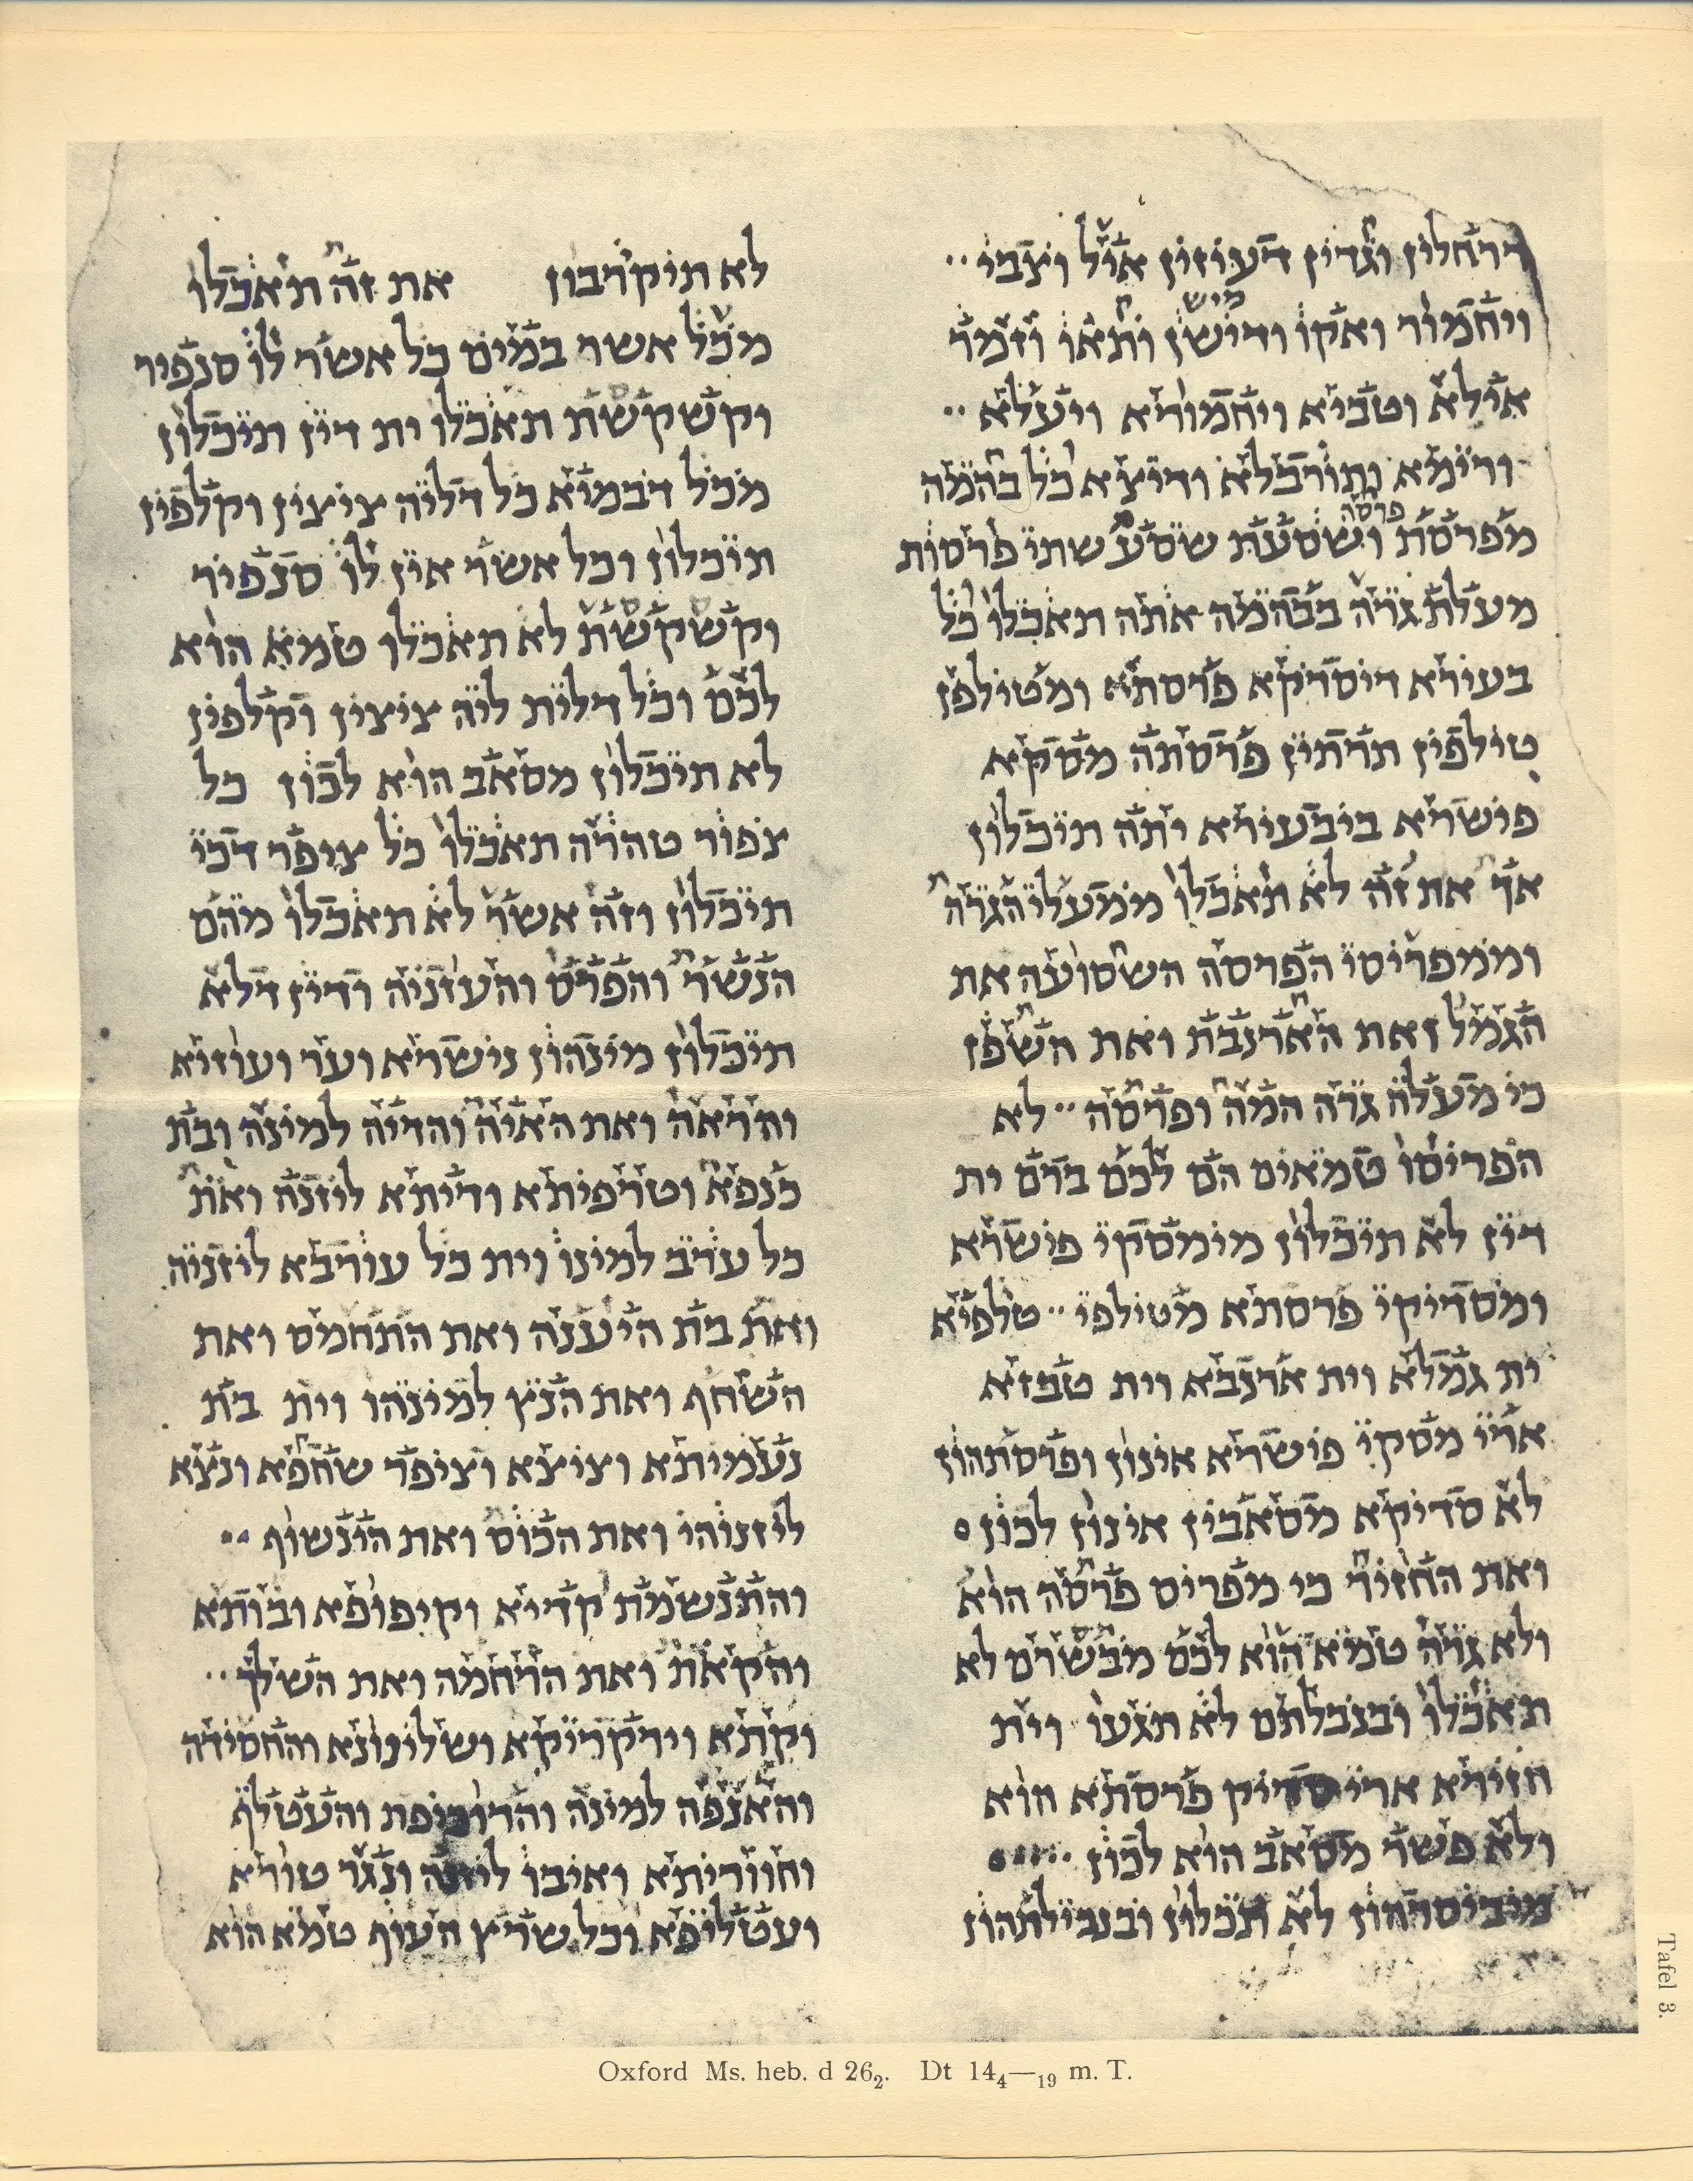 דרחלוין וגדיין דעוזין איל וצבי
ויחמור ואקו ודישן ותאו וזמר
מיש
אילא וטביא ויחמוריא ויעלא
ורימא ותורבלא ודיצא כל בהמה
פרסה
מפרסת ושסעת שסע שתי פרסות
מעלת גרה בבהמה אתה תאכלו כל
בעירא דיסדיקא פרסתא ומטילפן
טילפין תרתין פרסתה מסקא
פישרא ביבעירא יתה תיכלון
אך את זה לא תאכלו ממעלי הגרה
וממפריסי הפרסה השסועה את
הגמל ואת הארנבת ואת השפן
כי מעלה גרה המה ופרסה לא
הפריסו טמאים הם לכם ברם ית
דין לא תיכלון מימסקי פישרא
ומסדיקי פרסתא מטילפי טלפיא
ית גמלא וית ארנבא וית טבזא
ארי מסקי פישרא אינון ופרסתהון
לא סדיקא מסאבין אינון לכון
ואת החזיר כי מפריס פרסה הוא
ולא גרה טמא הוא לכם מבשרם לא
תאכלו ובנבלתם לא תגעו וית
חזירא ארי סדיק פרסתא הוא
ולא פשר מסאב הוא לכון
מיביסרהון לא תכלון ובנבילתהון
לא תיקרבון את זה תאכלו
מכל אשר במים כל אשר לו סנפיר
וקשקשת תאכלו ית דין תיכלון
מכל דבמיא כל דליה ציצין וקלפין
תיכלון וכל אשר אין לו סנפיר
וקשקשת לא תאכלו טמא הוא
לכם וכל דלית ליה ציצין וקלפין
לא תיכלון מסאב הוא לכון כל
צפור טהרה תאכלו כל ציפר דכי
תיכלון וזה אשר לא תאכלו מהם
הנשר והפרס והעזניה ודין דלא
תיכלון מינהון נישרא וער ועוזיא
והראה ואת האיה והדיה למינה ובת
כנפא וטרפיתא ודיתא ליזנה ואת
כל ערב למינו וית כל עורבא ליזניה
ואת בת היענה ואת התחמס ואת
השחף ואת הנץ למינהו וית בת
נעמיתא וציצא וציפר שחפא ונצא
ליזנוהי ואת הכוס ואת הינשוף
והתנשמת קדיא וקיפופא ובותא
והקאת ואת הרחמה ואת השלך
וקתא וירקריקא ושלינונא והחסידה
והאנפה למינה והדוכיפת והעטלף
וחווריתא ואיבו ליזנה ונגר טורא
ועטליפא וכל שרץ העוף טמא הוא
Oxford Ms. heb. d 26₂. Dt 14₄—₁₉ m. T.
Tafel 3.